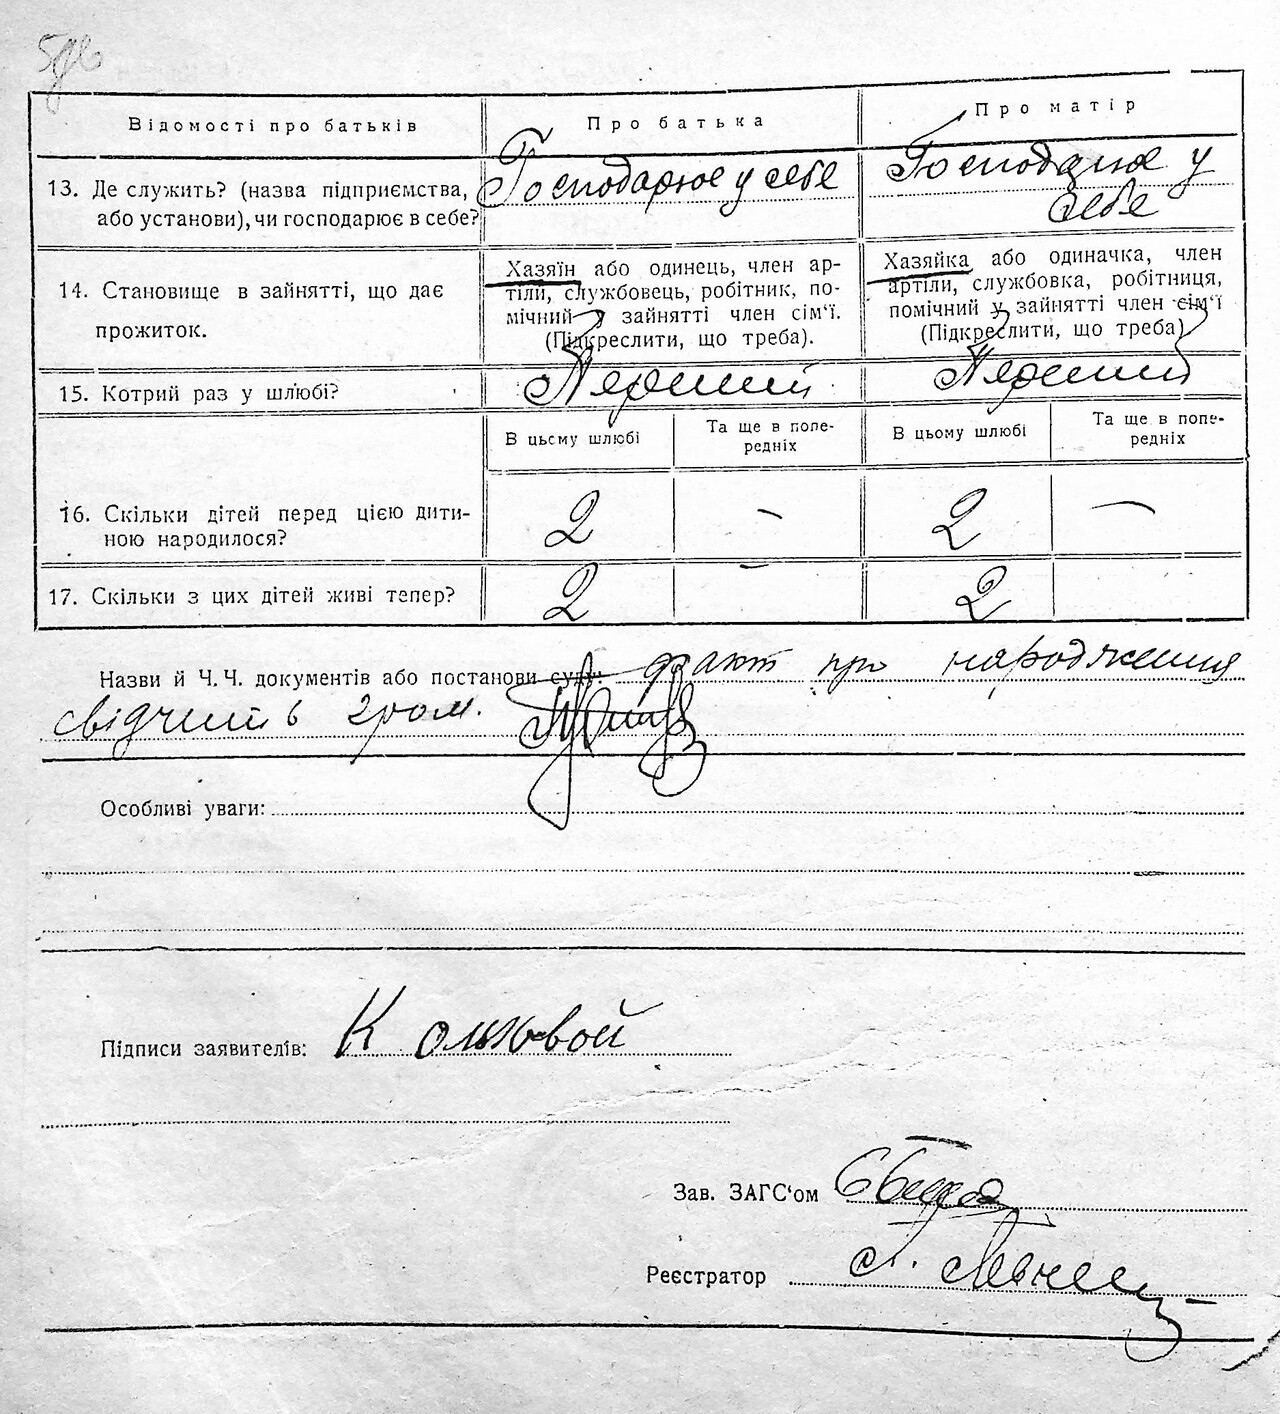 Відомості про батьків
Про батька
Про матір
13. Де служить? (назва підприємства,
або установи), чи господарює в себе?
Господарює у себе
Господарює у
себе
14. Становище в зайнятті, що дає
прожиток.
Хазяїн або одинець, член ар-
тіли, службовець, робітник, по-
мічний у зайнятті член сім'ї.
(Підкреслити, що треба).
Хазяйка або одиначка, член
артіли, службовка, робітниця,
помічний у зайнятті член сім'ї
(Підкреслити, що треба)
15. Котрий раз у шлюбі?
Перший
Перший
В цьому шлюбі
Та ще в попе-
редніх
В цьому шлюбі
Та ще в попе-
редніх
16. Скільки дітей перед цією дити-
ною народилося?
2 – 2 –
17. Скільки з цих дітей живі тепер?
2 – 2
Назви й Ч. Ч. документів або постанови суду: факт про народження
свідчить гром.
Особливі уваги:
Підписи заявителів:
Зав. ЗАГС'ом
Реєстратор